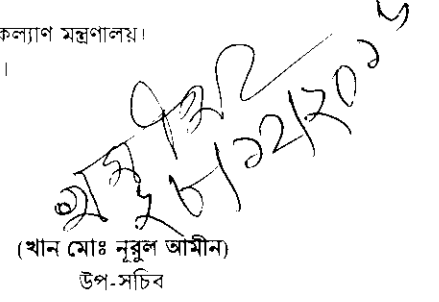 কল্যাণ মন্ত্রণালয়।
।
৮/১২/২০১৫
(খান মোঃ নূরুল আমীন)
উপ-সচিব